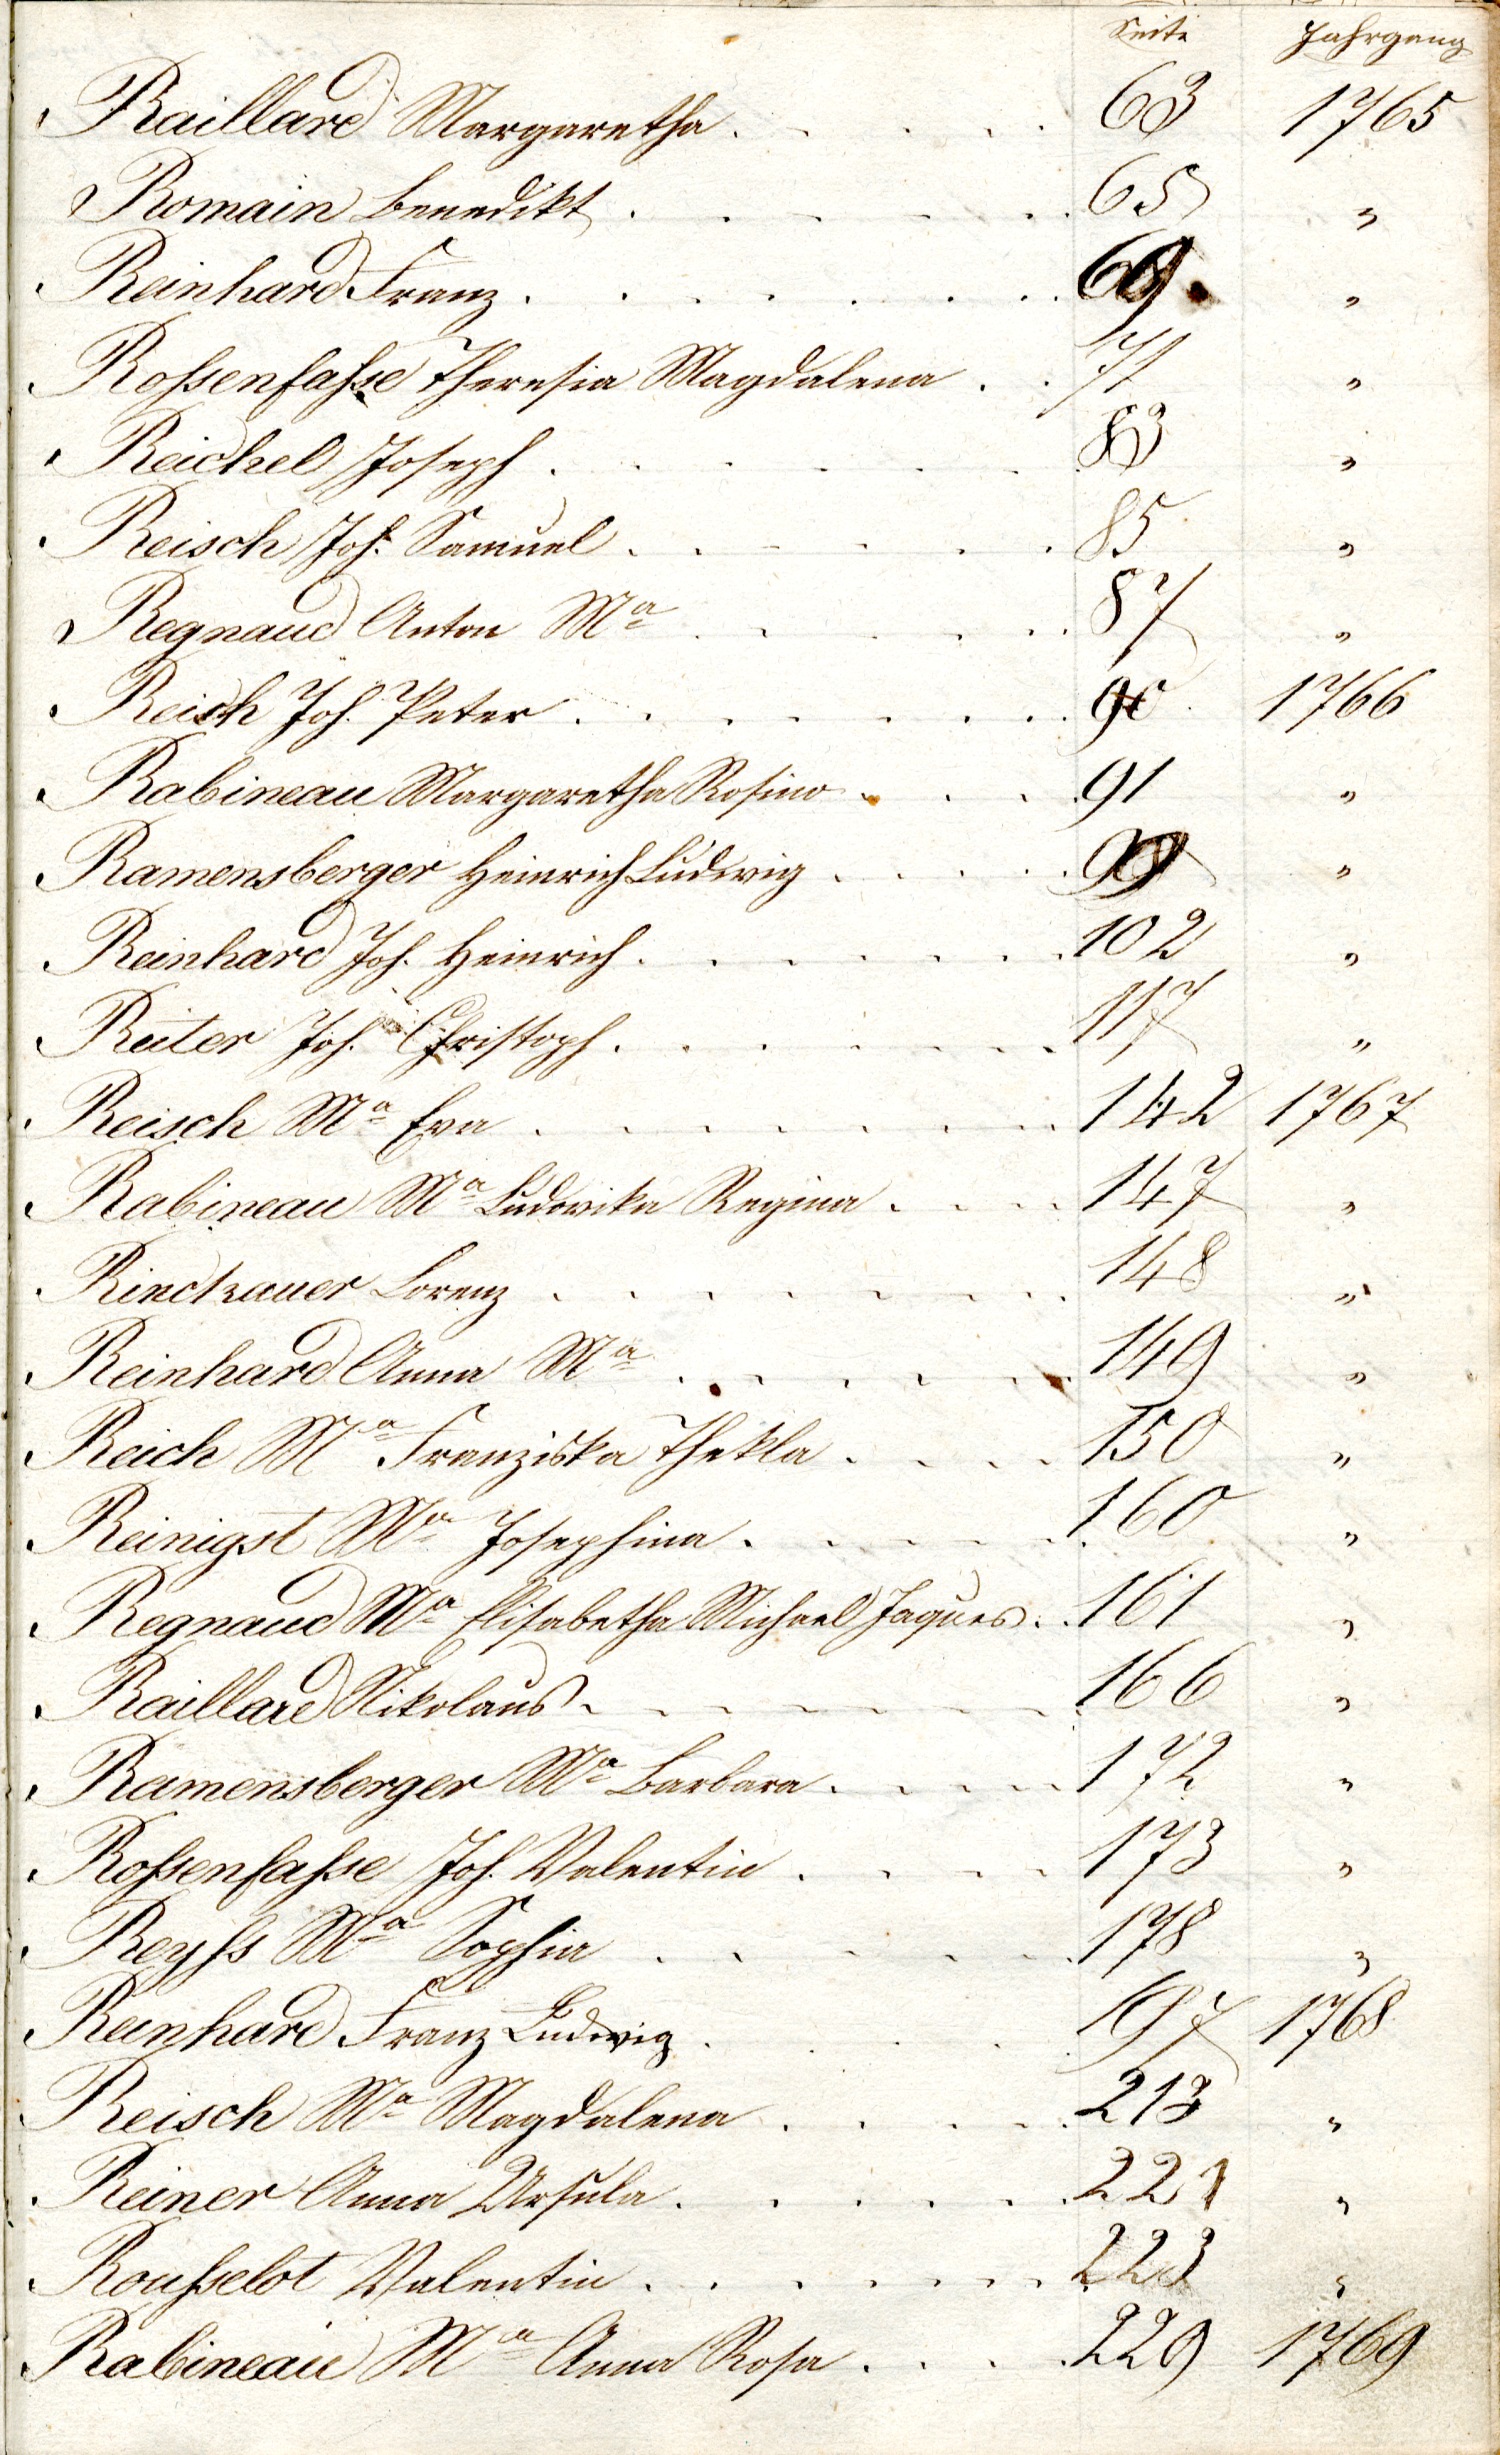 Seite Jahrgang
Raillard Margaretha . . . . . 63 1765
Romain Benedikt . . . . . . 65 "
Reinhard Franz . . . . . . . . 69. "
Roßenfaße Theresia Magdalena . . 71 "
Reichel Joseph . . . . . . . 83 "
Reisch Joh. Samuel . . . . . . . 85 "
Regnaud Anton Ma . . . . . . 87 "
Reich Joh. Peter . . . . . . . . 90 1766
Rabineau Margaretha Rosina . . . . 91 "
Ramensberger Heinrich Ludwig . . . . . 99 "
Reinhard Joh. Heinrich . . . . . . . 102 "
Reiter Joh. Christoph . . . . . . . 117 "
Reisch Ma Eva . . . . . . . . 142 1767
Rabineau Ma Ludovika Regina . . . . 147 "
Lorenz . . . . . . . . 148 "
Reinhard Anna Ma . . . . . . . 149 "
Reich Ma Franziska Thekla . . . . . 150 "
Reinigst Ma Josephina . . . . . . 160 "
Regnaud Ma Elisabetha Michael Jaques . . 161 "
Raillard Nikolaus . . . . . . . . 166 "
Ramensberger Ma Barbara . . . . . 172 "
Roßenfaße Joh. Valentin . . . . . 173 "
Reyß Ma Sophia . . . . . . 178 "
Reinhard Franz Ludwig . . . . 197 1768
Reisch Ma Magdalena . . . . . 213 "
Reiner Anna Ursula . . . . . . 221 "
Roußelot Valentin . . . . . . . 223 "
Rabineau Ma Anna Rosa . . . . 229 1769